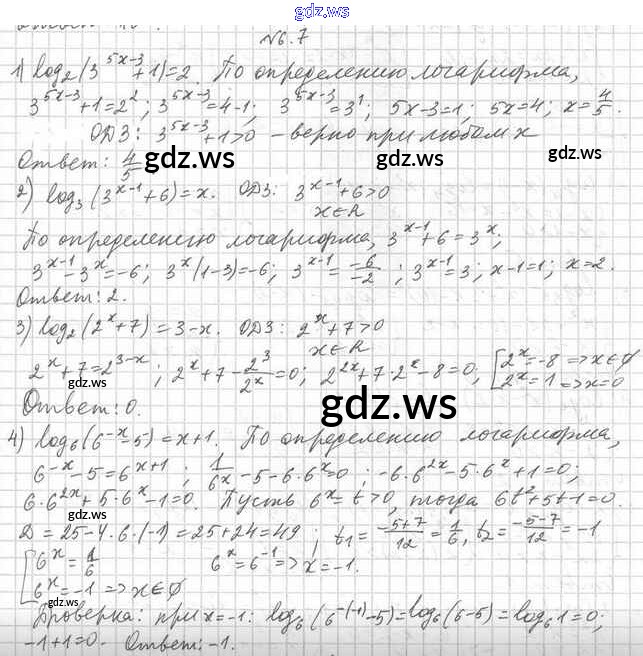 gdz.ws
№6.7
1) log₂(3^(5x-3)+1)=2. По определению логарифма,
3^(5x-3)+1=2²; 3^(5x-3)=4-1; 3^(5x-3)=3¹; 5x-3=1; 5x=4; x=4/5.
ОДЗ: 3^(5x-3)+1>0 - верно при любом x
Ответ: 4/5
gdz.ws gdz.ws gdz.ws
2) log₃(3^(x-1)+6)=x. ОДЗ: 3^(x-1)+6>0
x∈R
По определению логарифма, 3^(x-1)+6=3^x;
3^(x-1)-3^x=-6; 3^x(1-3)=-6; 3^(x-1)=-6/-2; 3^(x-1)=3; x-1=1; x=2.
Ответ: 2.
3) log₂(2^x+7)=3-x. ОДЗ: 2^x+7>0
x∈R
2^x+7=2^(3-x); 2^x+7-2³/2^x=0; 2^(2x)+7·2^x-8=0; [2^x=-8=>x∈∅
2^x=1=>x=0
gdz.ws
Ответ: 0.
gdz.ws
4) log₆(6^(-x)-5)=x+1. По определению логарифма,
6^(-x)-5=6^(x+1); 1/6^x-5-6·6^x=0; -6·6^(2x)-5·6^x+1=0;
6·6^(2x)+5·6^x-1=0. Пусть 6^x=t>0, тогда 6t²+5t-1=0.
D=25-4·6·(-1)=25+24=49; t₁=(-5+7)/12=1/6, t₂=(-5-7)/12=-1
[6^x=1/6 6^x=6^(-1)=>x=-1.
6^x=-1=>x∈∅
gdz.ws gdz.ws
Проверка: при x=-1: log₆(6^(-(-1))-5)=log₆(6-5)=log₆1=0;
-1+1=0. Ответ: -1.